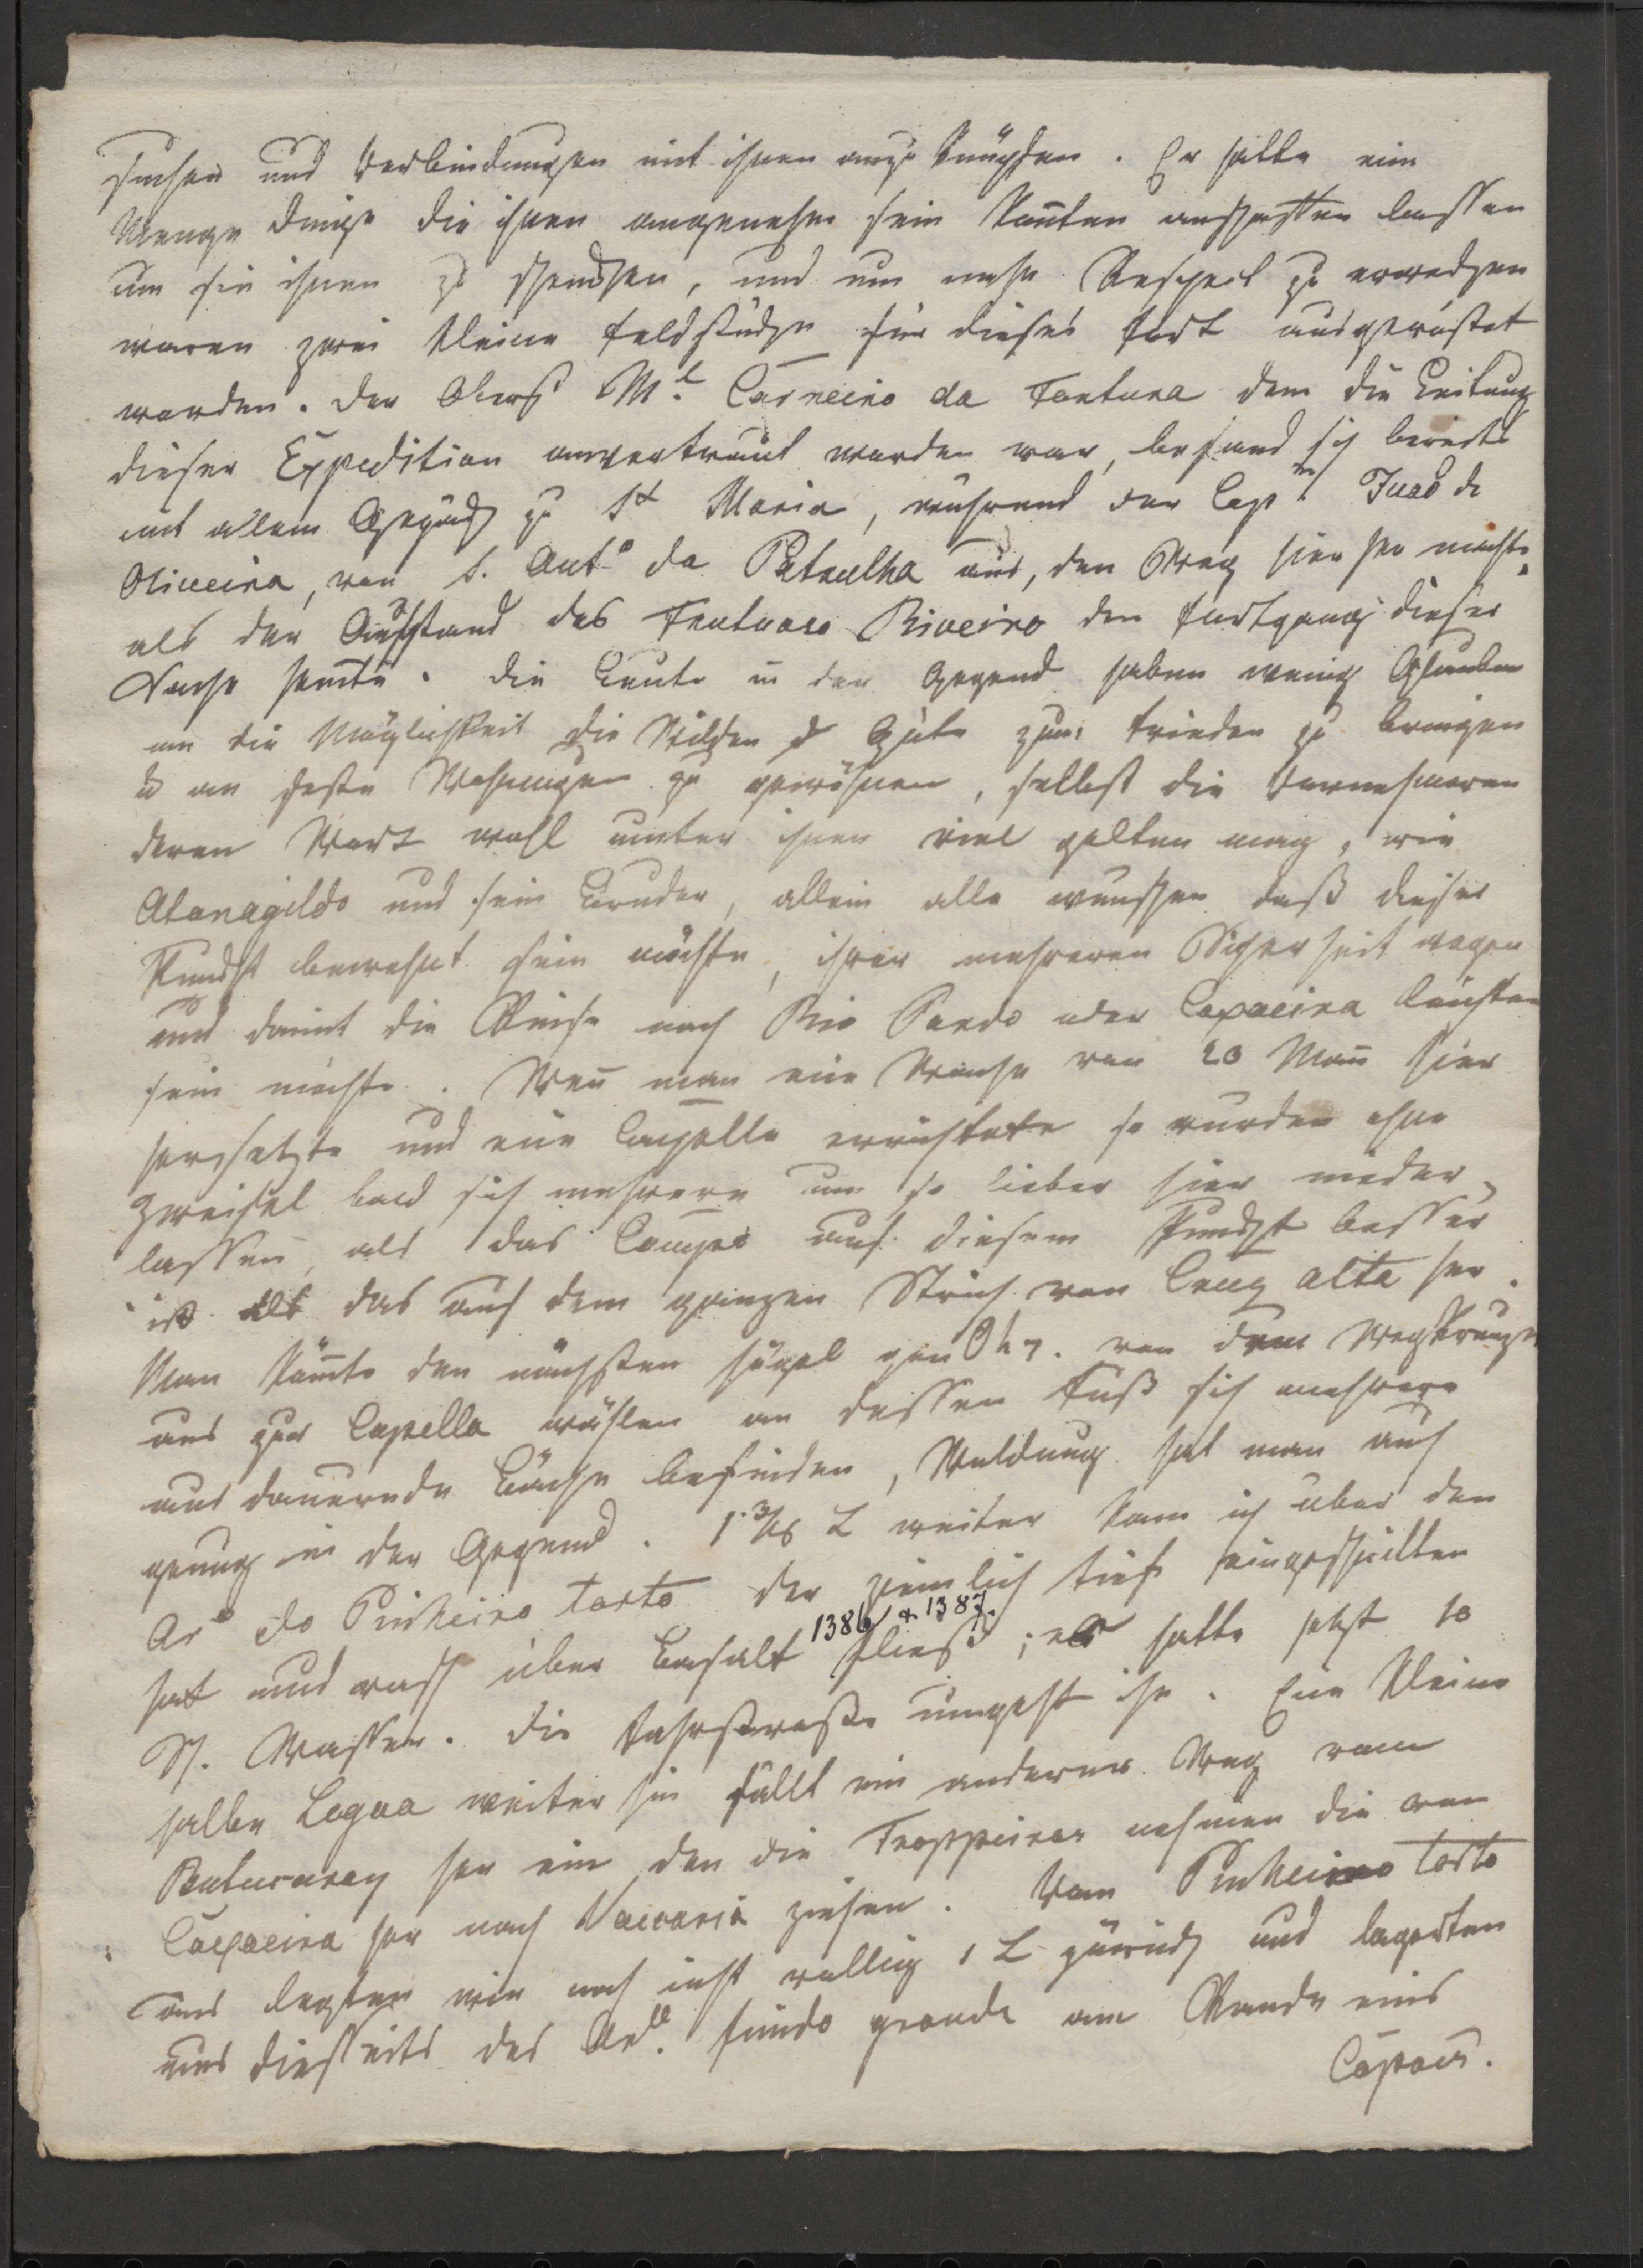 suchen und Verbindungen mit ihnen anzuknüpfen. Er hatte eine
Menge Dinge die ihnen angenehm sein konnten anschaffen lassen
um sie ihnen zu schenken, und um mehr Respect zu erwecken
waren zwei kleine Feldstücke für dieses Fort ausgerüstet
worden. Der Oberst Ml. Carneiro da Fontura dem die Leitung
dieser Expedition anvertraut worden war, befand sich bereits
mit allem Gepäck zu Sta Maria, während der Capm. Juaõ de
Oliveira, von S. Anto da Patrulha aus, den Weg hierher machte,
als der Aufstand des Fructuoso Riveiro den Fortgang dieser
Sache hemte. Die Leute in der Gegend haben wenig Glauben
an die Möglichkeit die Wilden Güte zum Frieden zu bringen
u an feste Wohnungen zu gewöhnen, selbst die Vornehmeren
deren Wort wohl unter ihnen viel gelten mag, wie
Atanagildo und sein Bruder, allein alle wünschen daß dieser
Punckt bewohnt sein möchte, ihrer mehreren Sicherheit wegen
und damit die Reise nach Rio Pardo oder Caxoeira leichter
sein möchte. Wen̄ man eine Wache von 20 Man̄ hier
hersetzte und eine Capelle errichtete so wurden ohne
Zweifel bald sich mehrere um so lieber hier nieder
lassen, als das Campo auf diesem Punckt besser
ist als das auf dem ganzen Strich von Cruz alta her.
Man kön̄te den nächsten Hügel gen O h 7. von dem Wegkreuze
aus zur Capella wählen an dessen Fuß sich mehrere
ausdauernde Bäche befinden, Waldung hat man auch
genug in der Gegend. 1.3/16 L weiter kam ich über den
Aro do Pinheiro torto der ziemlich tief eingespülten
1386 & 1387.
hat und rasch über Basalt fliest; er hatte jetzt 10
Wasser. Die Fahrstraße umgeht ihn. Eine kleine
halbe Legoa weiter hin fällt ein anderer Weg vom
Butucaray her ein den die Troppeiros nehmen die von
Caxoeira her nach Vaccaria ziehen. Vom Pinheiro torto
aus legten wir noch nicht völlig 1 L zurück und lagerten
uns diesseits des fundo grande am Rande eines
Capoes.